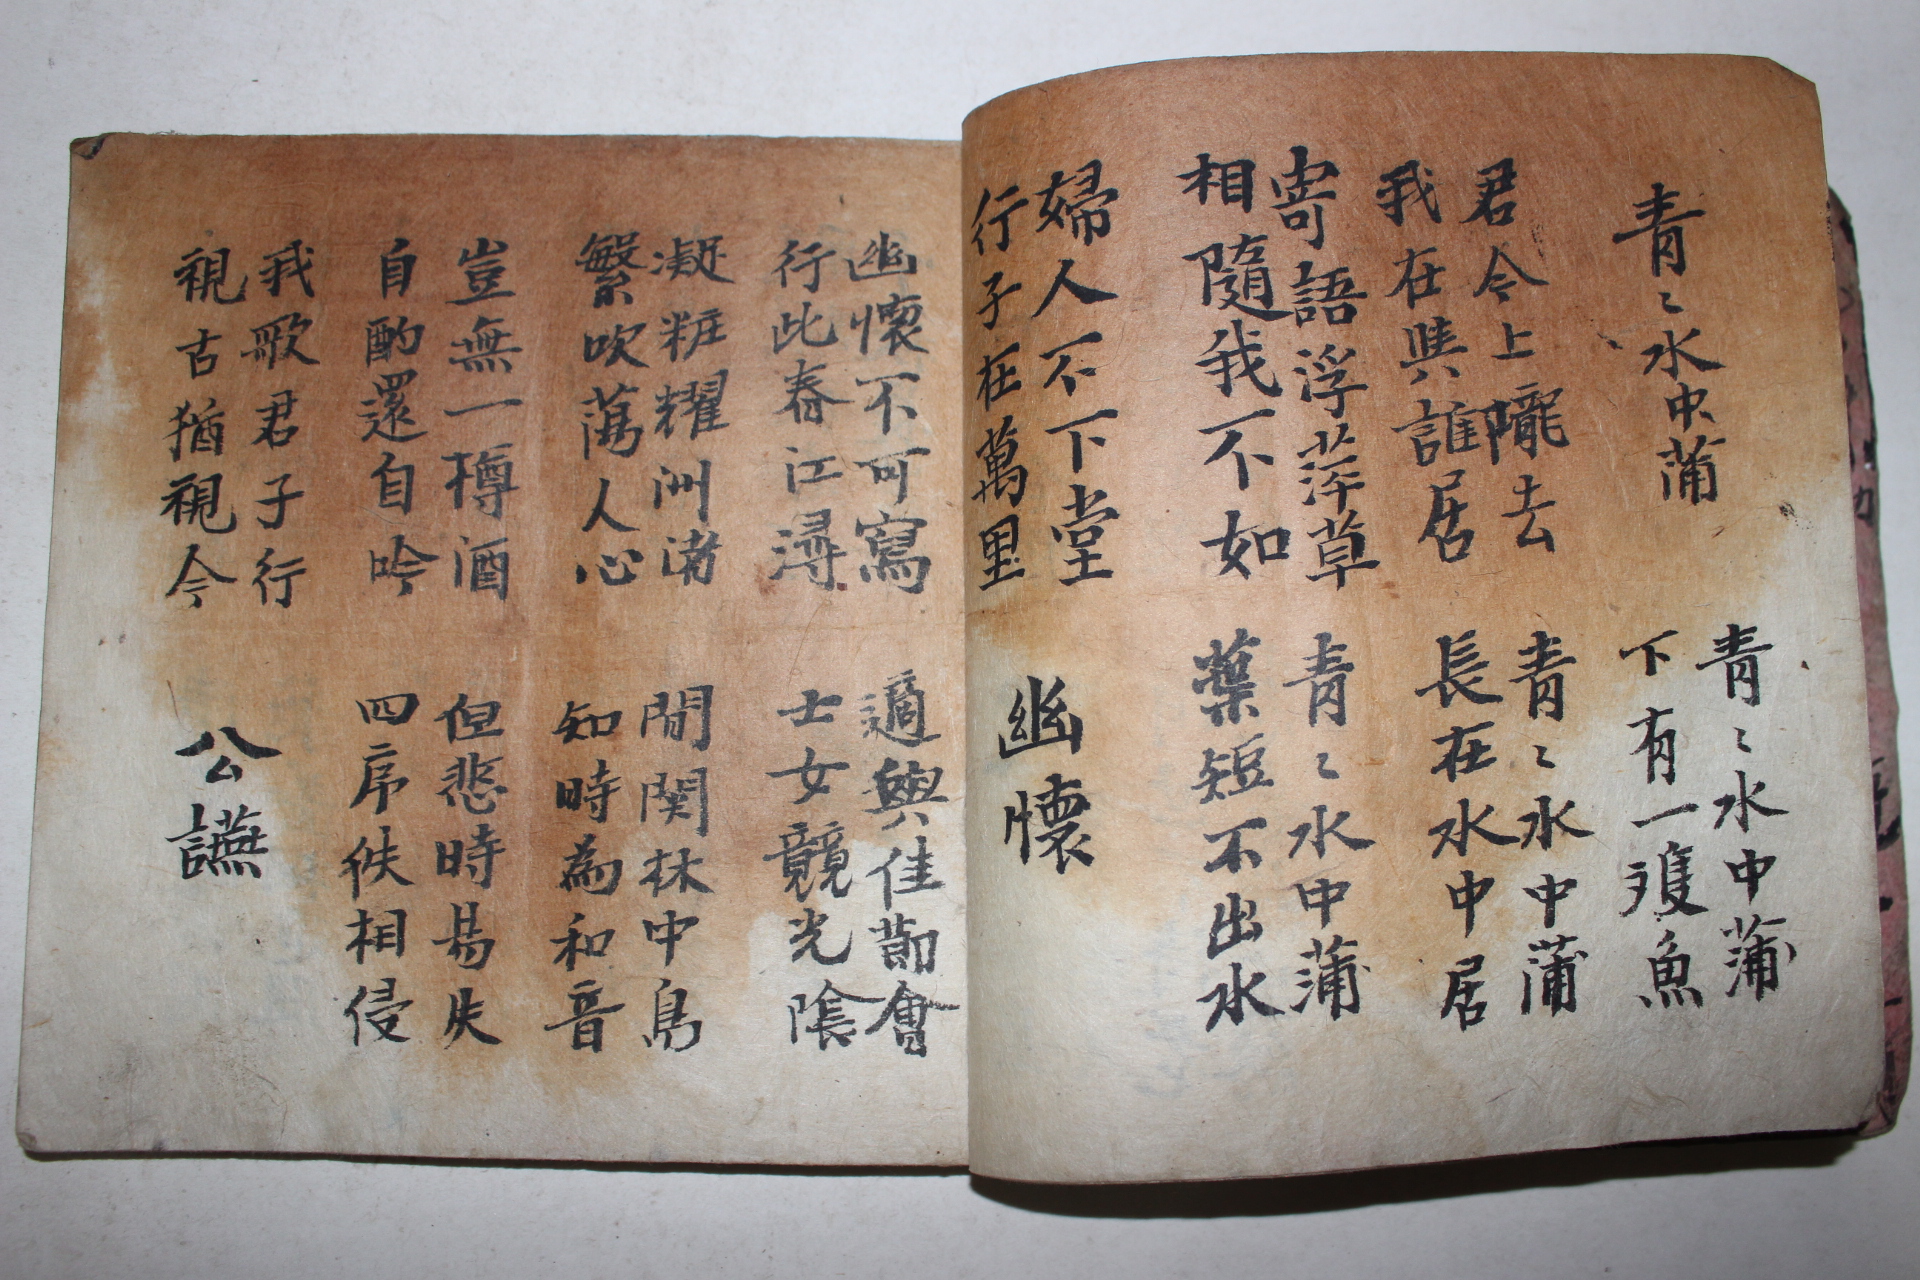 青〻水中蒲
青〻水中蒲
下有一雙魚
君今上隴去
我在與誰居
青〻水中蒲
長在水中居
寄語浮萍草
相隨我不如
青〻水中蒲
葉短不出水
婦人不下堂
行子在萬里
幽懷
幽懷不可寫
行此春江潯
適與佳節會
士女競光陰
凝粧耀洲渚
繁吹蕩人心
間関林中鳥
知時為和音
豈無一樽酒
自酌還自吟
但悲時易失
四序佚相侵
我歌君子行
視古猶視今
公讌